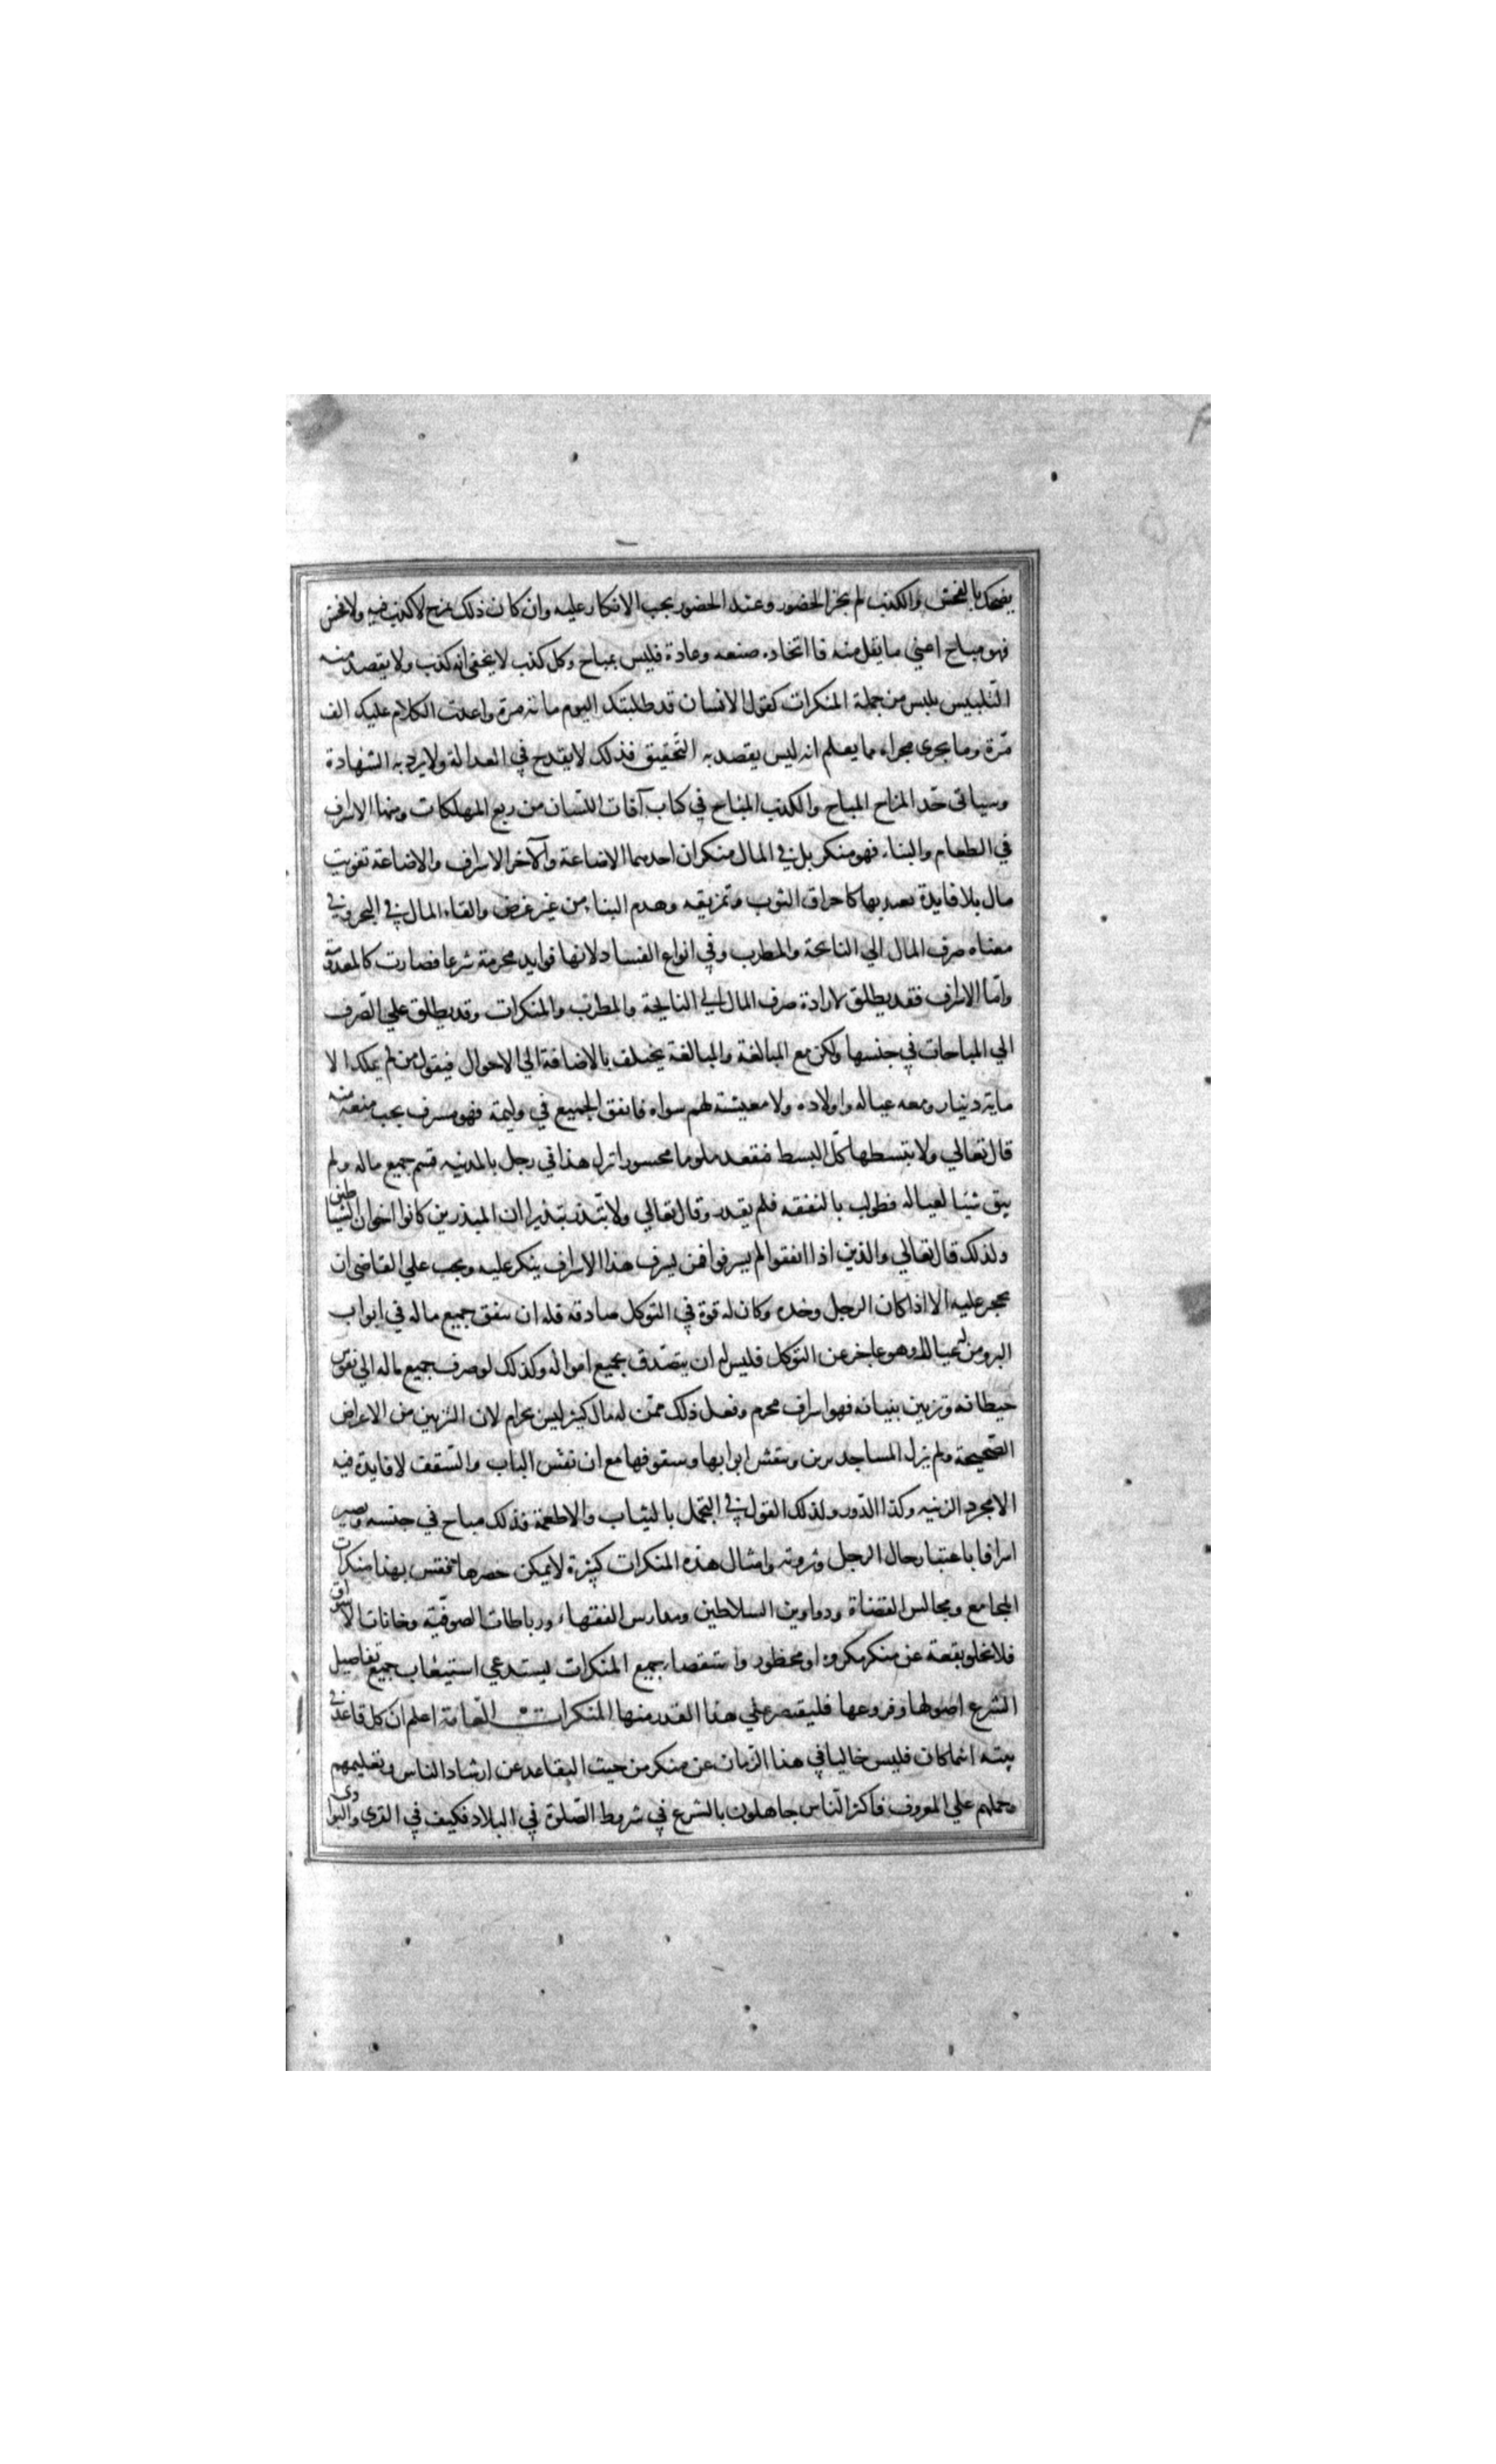 يضحك بالفحش والكذب لم يجز الحضور وعند الحضور يجب الانكار عليه وان كان ذلك بمزح لا كذب فيه ولا فحش
فهو مباح اعني ما يقل منه فا اتخاده صنعه وعادة فليس بمباح وكل كذب لا يخفى انه كذب ولا يقصد منه
التلبيس يلبس من جملة المنكرات كقول الانسان قد طلبتك اليوم مائه مرة واعدت الكلام عليك الف
مرة وما يجرى مجراه مما يعلم انه ليس يقصد به التحقيق فذلك لا يقدح في العدالة ولا يرد به الشهادة
وسياتى حد المزاح المباح والكذب المباح في كتاب آفات اللسان من ربع المهلكات ومنها الاسراف
في الطعام والبناء فهو منكر بل في المال منكران احدهما الاضاعة والآخر الاسراف والاضاعة تفويت
مال بلا فايدة يعتد بها كاحراق الثوب وتمزيقه وهدم البناء من غير غرض والقاء المال في البحر وفي
معناه صرف المال الي النائحة والمطرب وفي انواع الفساد لانها فوايد محرمة شرعا فصارت كالمعدومة
واما الاسراف فقد يطلق لارادة صرف المال الي النايحة والمطرب والمنكرات وقد يطلق علي الصرف
الي المباحات في جنسها ولكن مع المبالغة والمبالغة يختلف بالاضافة الي الاحوال فيقول من لم يملك الا
ماية دينار ومعه عياله واولاده ولا معيشة لهم سواه فانفق الجميع في وليمة فهو مسرف يجب منعه منه
قال تعالي ولا تبسطها كل البسط فتقعد ملوما محسورا نزل هذا في رجل بالمدينه قسم جميع ماله ولم
يبق شيئا لعياله فطولب بالنفقه فلم يقدر وقال تعالي ولا تبذر تبذيرا ان المبذرين كانوا اخوان الشياطين
ولذلك قال تعالي والذين اذا انفقوا لم يسرفوا فمن يسرف هذا الاسراف ينكر عليه ويجب علي القاضي ان
يحجر عليه الا اذا كان الرجل وحده وكان له قوة في التوكل صادقه فله ان ينفق جميع ماله في ابواب
البر ومن له عيال او هو عاجز عن التوكل فليس له ان يتصدق بجميع امواله وكذلك لو صرف جميع ماله الي نقوش
حيطانه وتزيين بنيانه فهو اسراف محرم وفعل ذلك ممن له مال كثير ليس بحرام لان التزيين من الاغراض
الصحيحة ولم يزل المساجد تزين وينقش ابوابها وسقوفها مع ان نقش الباب والسقف لا فايدة فيه
الا مجرد الزينه وكذا الدور ولذلك القول في التجمل بالثياب والاطعمة فذلك مباح في جنسه ويصير
اسرافا باعتبار حال الرجل وثروته وامثال هذه المنكرات كثيرة لا يمكن حصرها فقس بهذا منكرات
المجامع ومجالس القضاة ودواوين السلاطين ومدارس الفقهاء ورباطات الصوفية وخانات الاسواق
فلا تخلو بقعة عن منكر مكروه او محظور واستقصاء جميع المنكرات يستدعي استيعاب جميع تفاصيل
الشرع اصولها وفروعها فليقتصر علي هذا القدر منها المنكرات العامة اعلم ان كل قاعد في
بيته اينما كان فليس خاليا في هذا الزمان عن منكر من حيث التقاعد عن ارشاد الناس وتعليمهم
وحملهم علي المعروف فاكثر الناس جاهلون بالشرع في شروط الصلوة في البلاد فكيف في القرى والبوادى